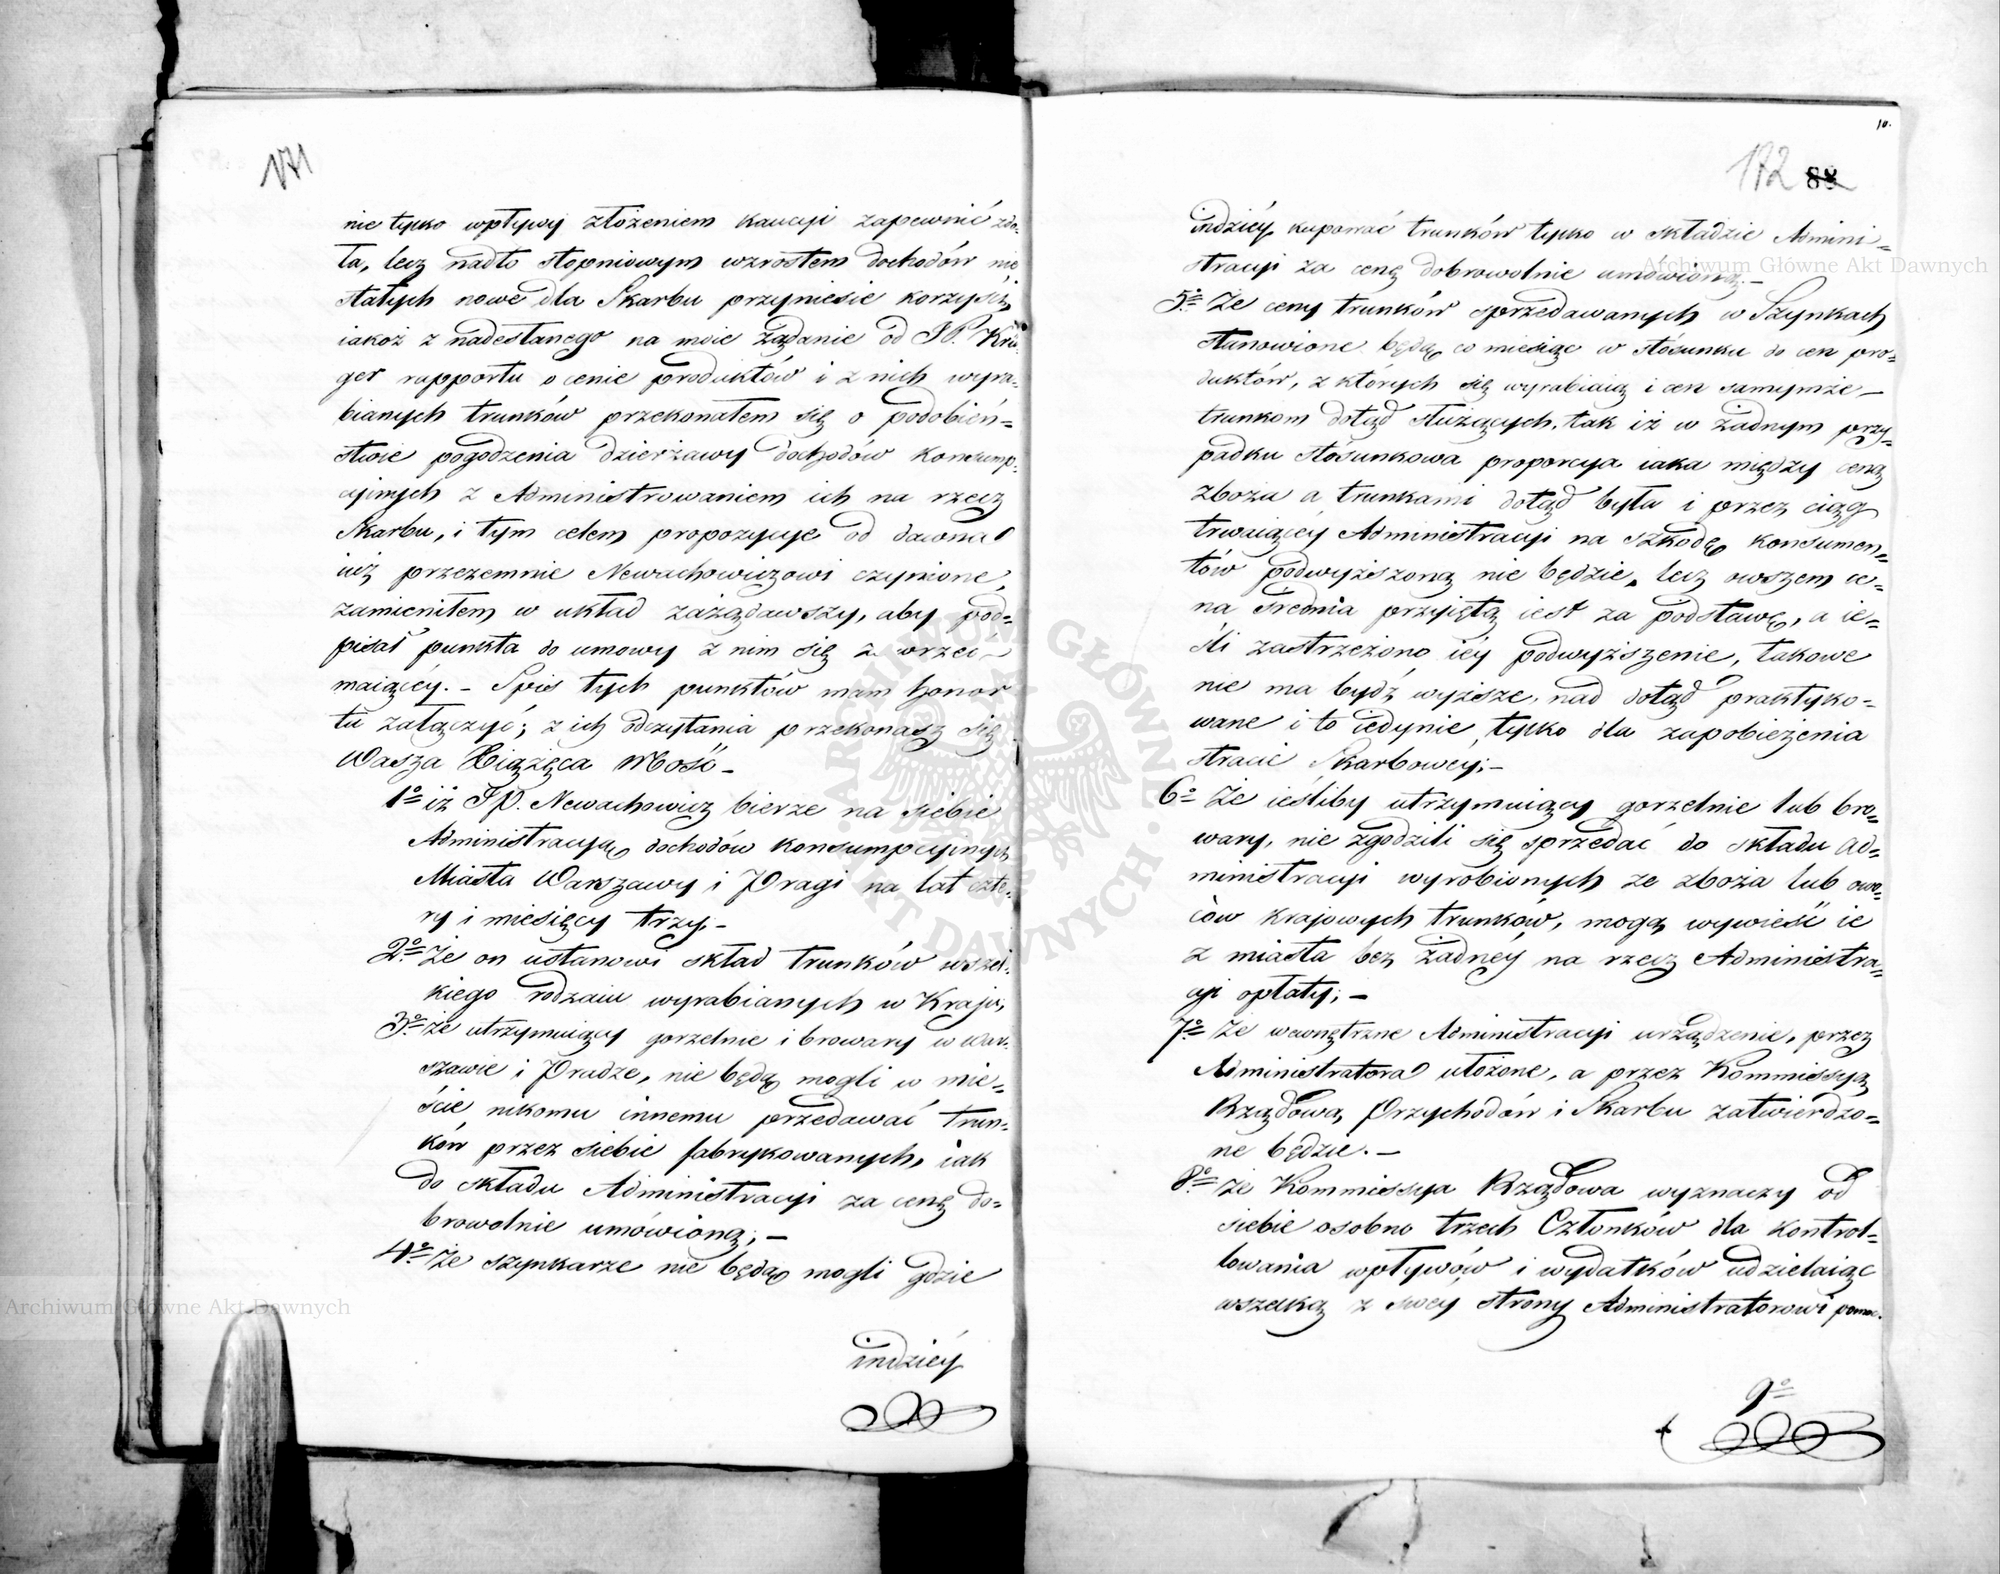 171
nie tylko wpływy złożeniem kaucyi zapewnić zdo-
ła, lecz nadto stopniowym wzrostem dochodów nie
stałych nowe dla Skarbu przyniesie korzyści,
iakoż z nadesłanego na moie żądanie od JP. Krü-
ger rapportu o cenie produktów i z nich wyra-
bianych trunków przekonałem się o podobień=
stwie pogodzenia dzierżawy dochodów konsump-
cyjnych z Administrowaniem ich na rzecz
Skarbu, i tym celem propozycye od dawna
iuż przezemnie Newachowiczowi czynione,
zamieniłem w układ zażądawszy, aby pod=
pisał punkta do umowy z nim się zawrzeć
maiącéy. – Spis tych punktów mam honor
tu załączyć; z ich odczytania przekonasz się
Wasza Xiążęca Mość –
1o iż JP. Newachowicz bierze na siebie
Administracyą dochodów konsumpcyjnych
Miasta Warszawy i Pragi na lat czte-
ry i miesięcy trzy, –
2o Że on ustanowi skład trunków wszel-
kiego rodzaiu wyrabianych w Kraju,
3o że utrzymuiący gorzelnie i browary w War-
szawie i Pradze, nie będą mogli w mie=
ście nikomu innemu przedawać trun-
ków przez siebie fabrykowanych, iak
do składu Administracyi za cenę do=
browolnie umówioną; –
4o Że szynkarze nie będą mogli gdzie
indziéy
10.
172 88
indziéy kupować trunków tylko w składzie Admini=
stracyi za cenę dobrowolnie umówioną; –
5o Że ceny trunków sprzedawanych w Szynkach
stanowione będą co miesiąc w stosunku do cen pro=
duktów, z których się wyrabiaią i cen samymże –
trunkom dotąd służących, tak iż w żadnym przy=
padku stósunkowa proporcya iaka między ceną
zboża a trunkami dotąd była i przez ciąg
trwaiącéy Administracyi na szkodę konsumen=
tów podwyższoną nie będzie, lecz owszem ce=
na średnia przyiętą iest za podstawę, a ie=
śli zastrzeżono iéy podwyższenie, takowe
nie ma bydź wyższe, nad dotąd praktyko=
wane i to iedynie, tylko dla zapobieżenia
stracie Skarbowey; –
6o Że ieśliby utrzymuiący gorzelnie lub bro=
wary, nie zgodzili się sprzedać do składu Ad=
ministracyi wyrobionych ze zboża lub owo=
ców krajowych trunków, mogą wywieść ie
z miasta bez żadnéy na rzecz Administra=
cyi opłaty; –
7o Że wewnętrzne Administracyi urządzenie, przez
Administratora ułożone, a przez Kommissyą
Rządową Przychodów i Skarbu zatwierdzo=
ne będzie. –
8o że Kommissya Rządowa wyznaczy od
siebie osobno trzech Członków dla kontrol=
lowania wpływów i wydatków udzielaiąc
wszelką z swey strony Administratorowi pomoc.
9o
Archiwum Główne Akt Dawnych
Archiwum Główne Akt Dawnych
ARCHIWUM GŁÓWNE AKT DAWNYCH